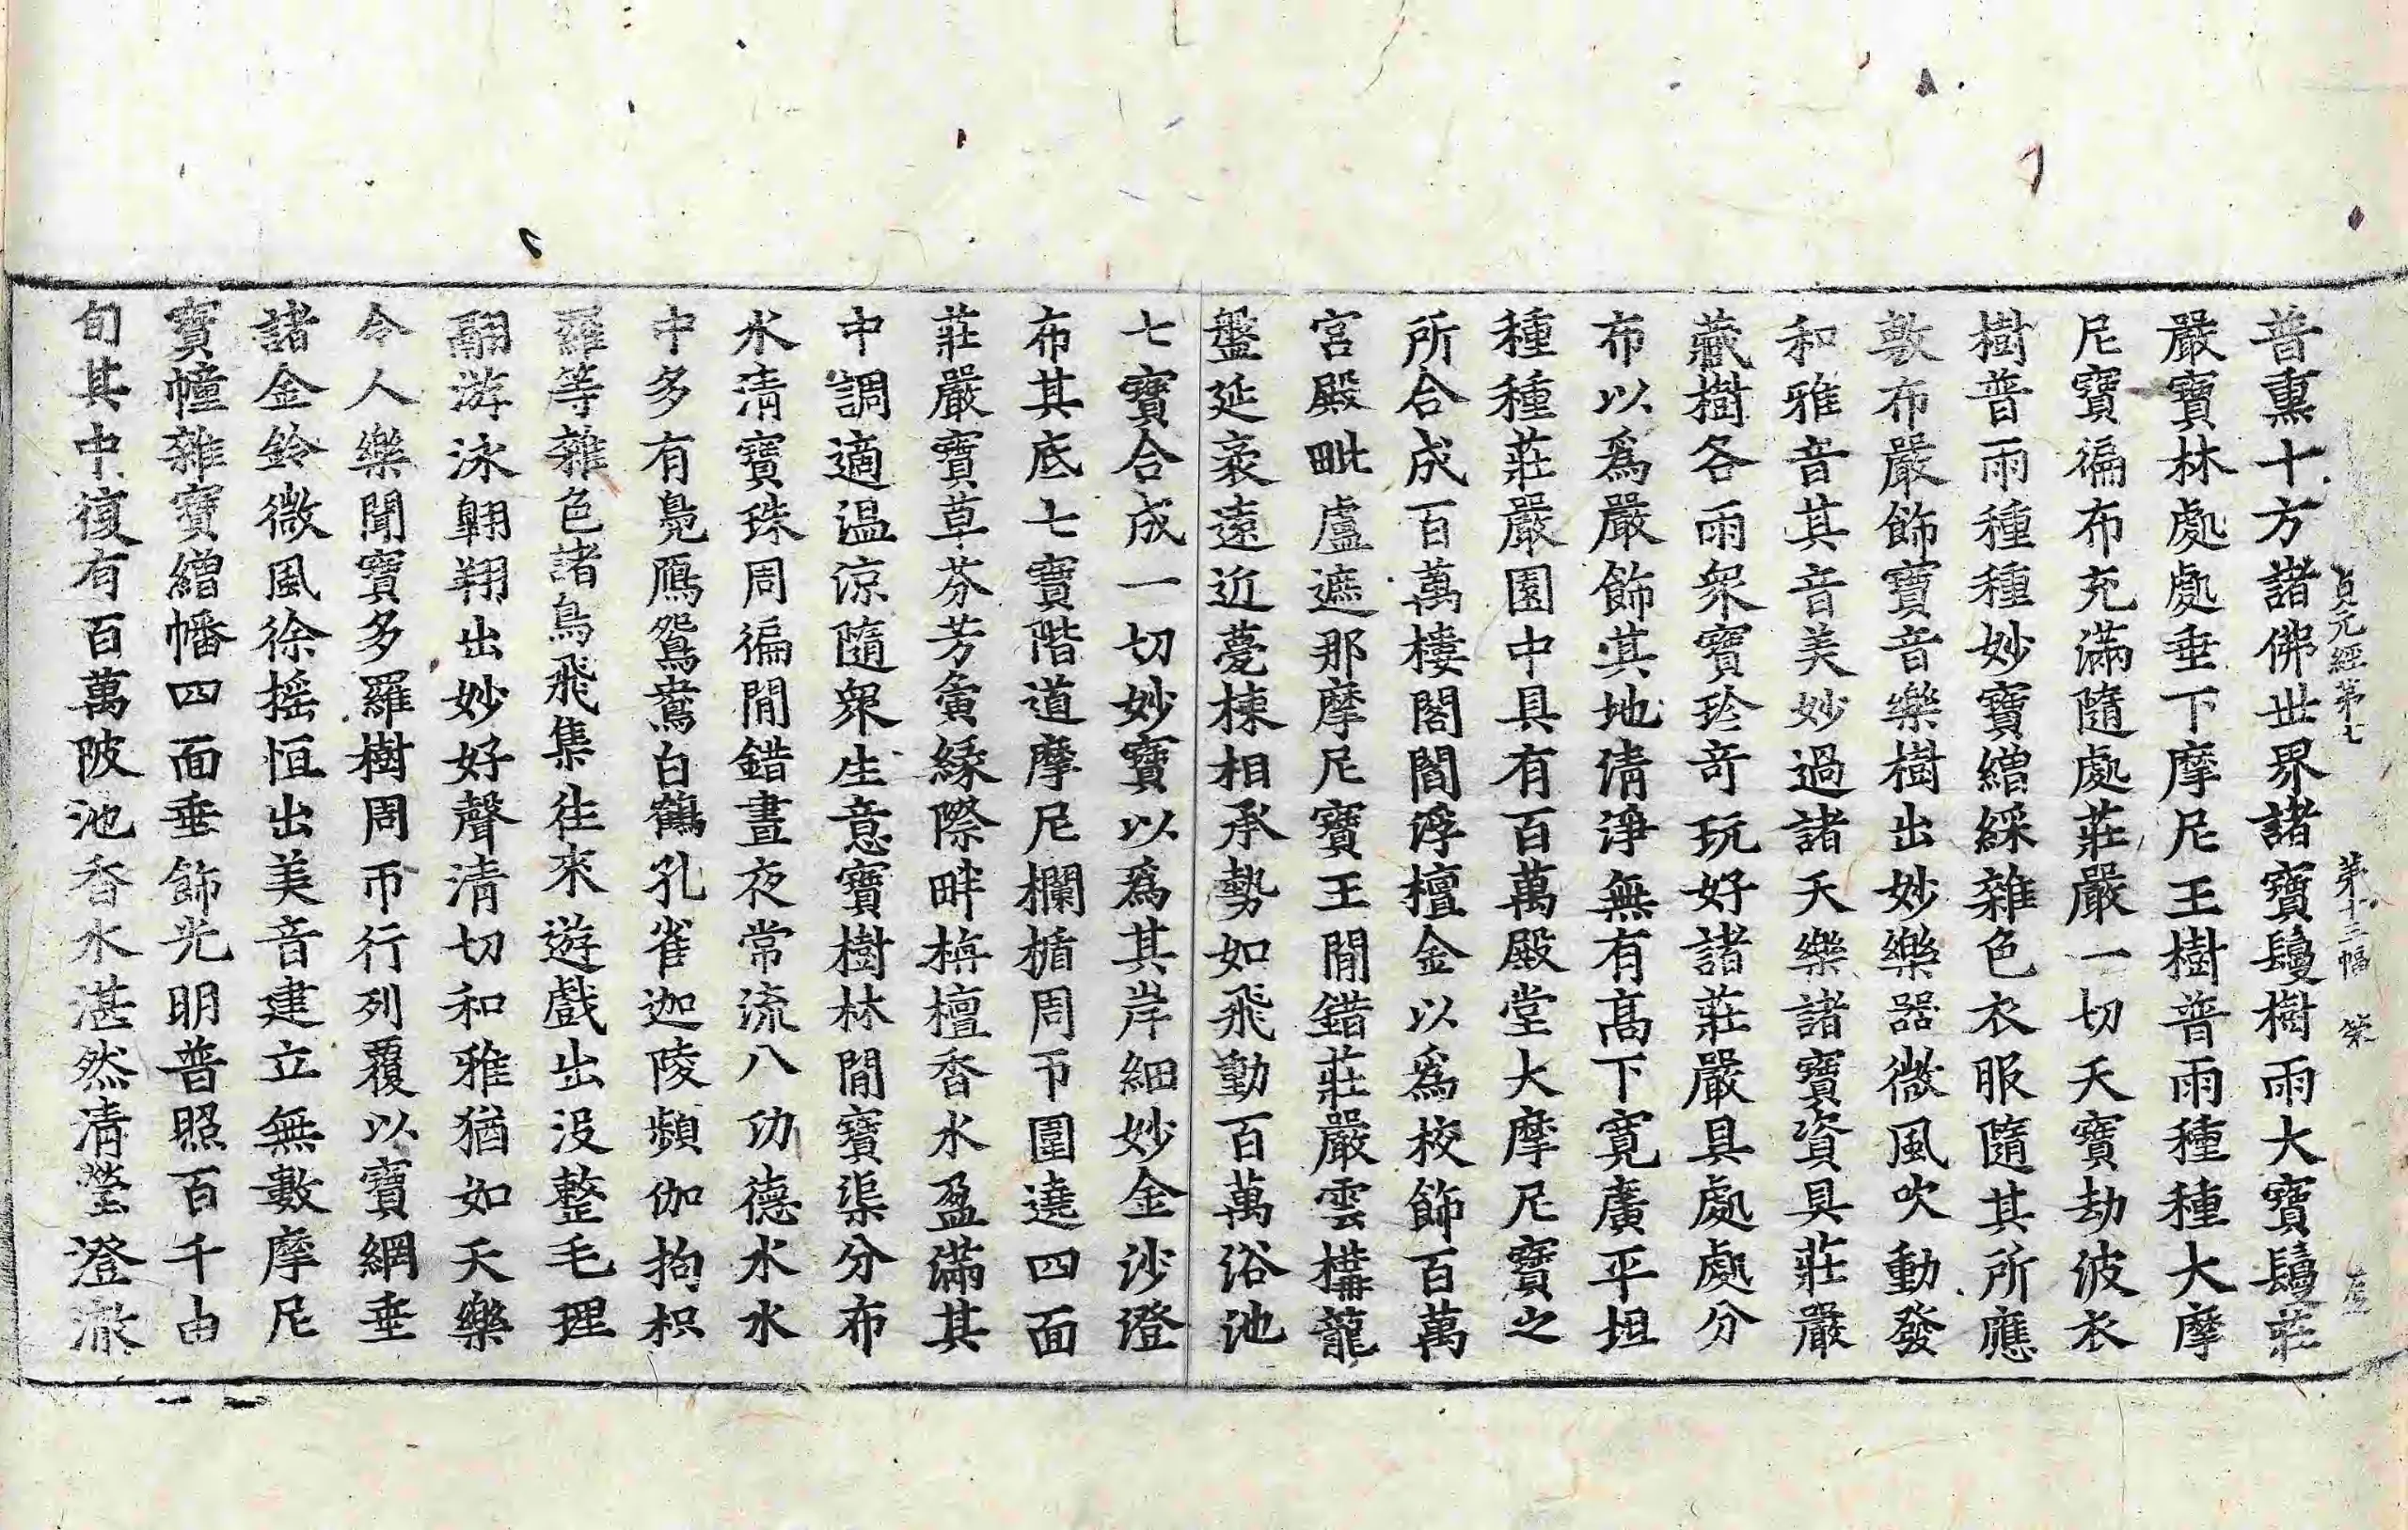 貞元經第七 第十三幅
普熏十方諸佛世界諸寶鬘樹雨大寶鬘莊
嚴寶林處處垂下摩尼王樹普雨種種大摩
尼寶徧布充滿隨處莊嚴一切天寶劫波衣
樹普雨種種妙寶繒綵雜色衣服隨其所應
敷布嚴飾寶音樂樹出妙樂器微風吹動發
和雅音其音美妙過諸天樂諸寶資具莊嚴
藏樹各雨衆寶珍奇玩好諸莊嚴具處處分
布以爲嚴飾其地清淨無有高下寬廣平坦
種種莊嚴園中具有百萬殿堂大摩尼寶之
所合成百萬樓閣閻浮檀金以爲校飾百萬
宮殿毗盧遮那摩尼寶王閒錯莊嚴雲構龍
盤延袤遠近甍棟相承勢如飛動百萬浴池
七寶合成一切妙寶以爲其岸細妙金沙澄
布其底七寶階道摩尼欄楯周帀圍遶四面
莊嚴寶草芬芳夤緣際畔栴檀香水盈滿其
中調適溫涼隨衆生意寶樹林閒寶渠分布
水清寶珠周徧閒錯晝夜常流八功德水水
中多有鳧鴈鴛鴦白鶴孔雀迦陵頻伽拘枳
羅等雜色諸鳥飛集往來遊戲出沒整毛理
翮游泳翺翔出妙好聲清切和雅猶如天樂
令人樂聞寶多羅樹周帀行列覆以寶網垂
諸金鈴微風徐搖恒出美音建立無數摩尼
寶幢雜寶繒幡四面垂飾光明普照百千由
旬其中復有百萬陂池香水湛然清瑩澄澈